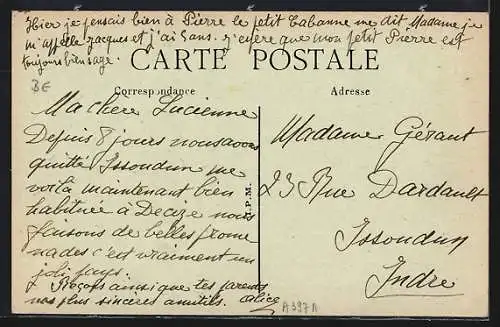 Hier je pensais bien à Pierre le petit Cabanne me dit Madame je
m'appelle Jacques et j'ai 5 ans. J'espère que mon petit Pierre est
toujours bien sage.
CARTE POSTALE
Correspondance
Adresse
BE
Ma chère Lucienne
Depuis 8 jours nous avons
quitté Issoudun me
voilà maintenant bien
habituée à Decize nous
faisons de belles prome
nades c'est vraiment un
joli pays.
Reçois ainsi que tes parents
nos plus sincères amitiés. Alice
Madame Gérant
23 Rue Dardault
Issoudun
Indre
P.M.
A397A